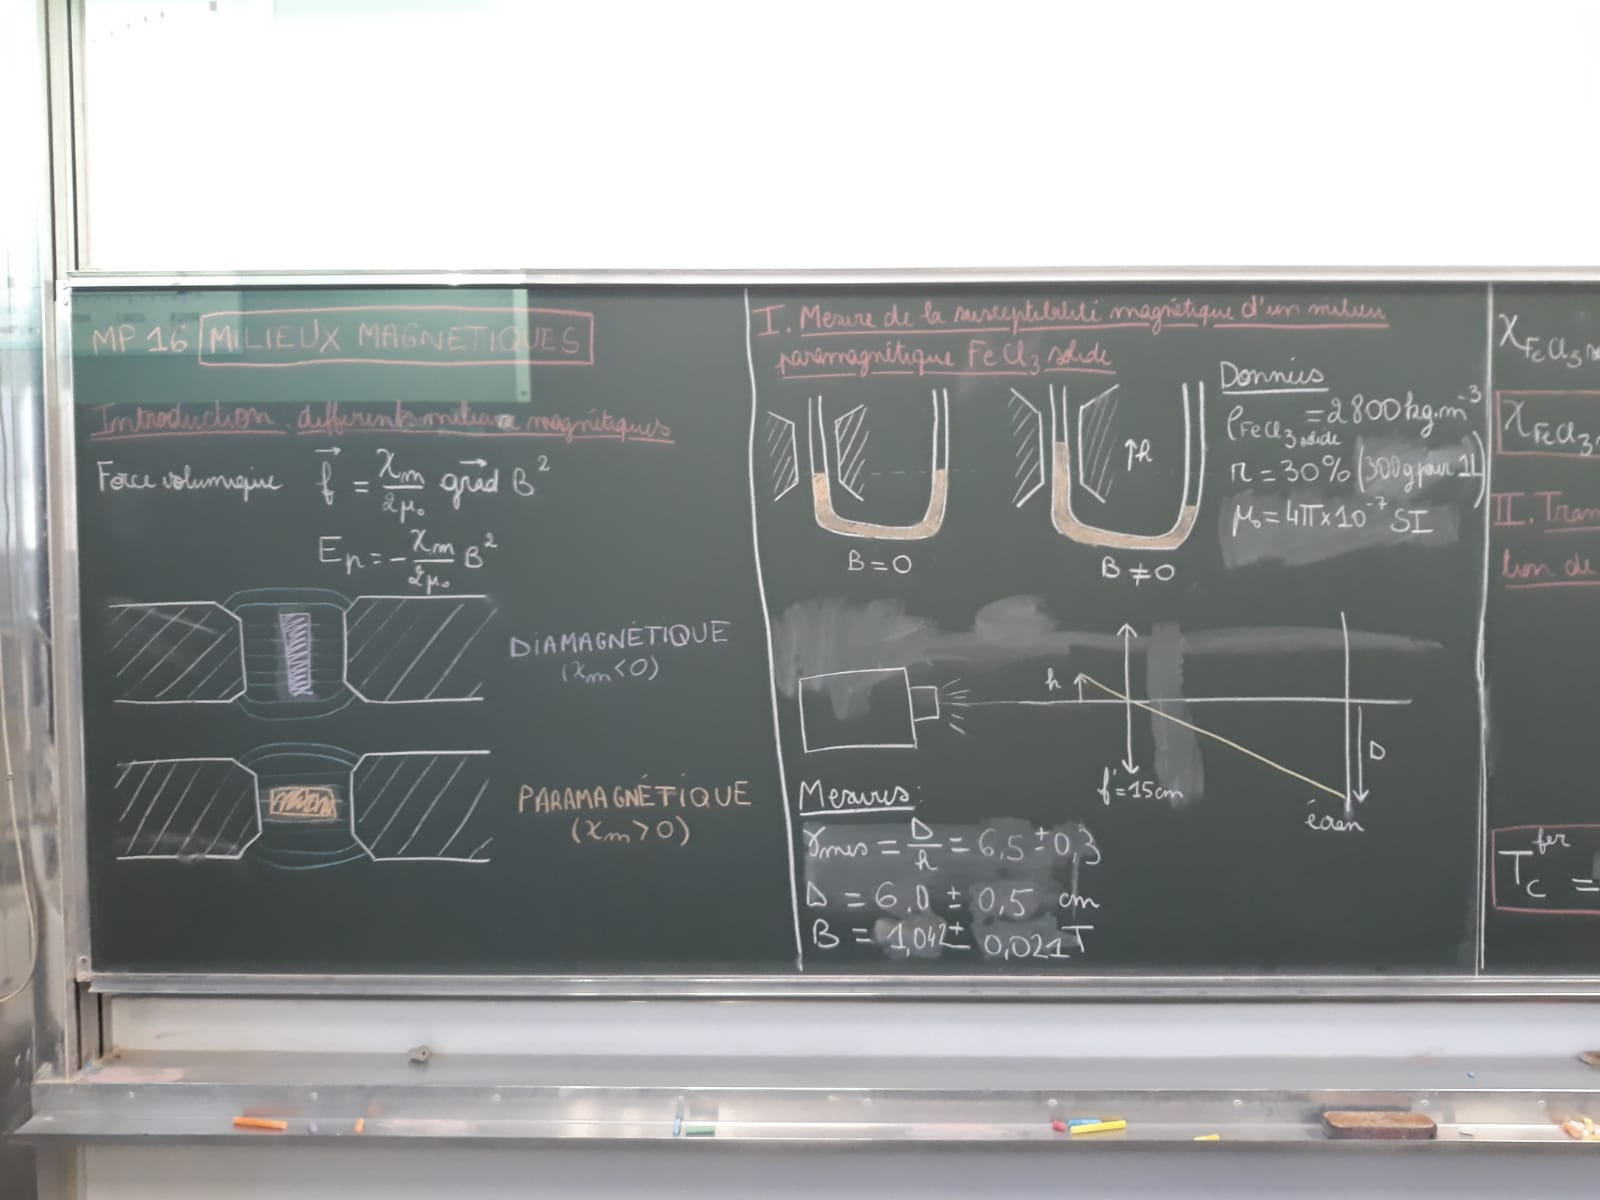 MP 16 MILIEUX MAGNÉTIQUES
Introduction différents milieux magnétiques
Force volumique f = χm/2μ₀ grad B²
Ep = - χm/2μ₀ B²
DIAMAGNÉTIQUE
(χm<0)
PARAMAGNÉTIQUE
(χm>0)
I. Mesure de la susceptibilité magnétique d'un milieu
paramagnétique FeCl₃ solide
B = 0
h
B ≠ 0
Données
ρFeCl₃ solide = 2800 kg.m⁻³
r = 30% (300g pour 1L)
μ₀ = 4π×10⁻⁷ SI
h
f' = 15cm
D
écran
Mesures:
γmes = D/h = 6,5 ± 0,3
D = 6,0 ± 0,5 cm
B = 1,042 ± 0,021 T
χFeCl₃
χFeCl₃
II. Tran
tion de
Tc fer =